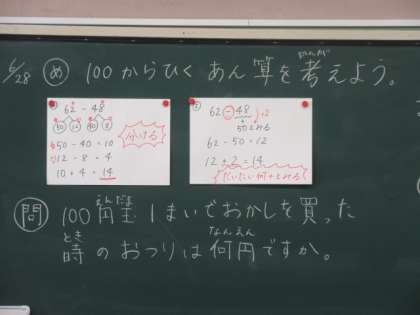 6/28 め 100からひくあん算を考えよう。
かんが
62 - 48
50 12 40 8
50 - 40 = 10
12 - 8 = 4
10 + 4 = 14
分ける
62 - 48
+2
50とみる
62 - 50 = 12
12 + 2 = 14
だいたい何十とみる
えんだま
問 100円玉1まいでおかしを買った
とき なんえん
時のおつりは何円ですか。